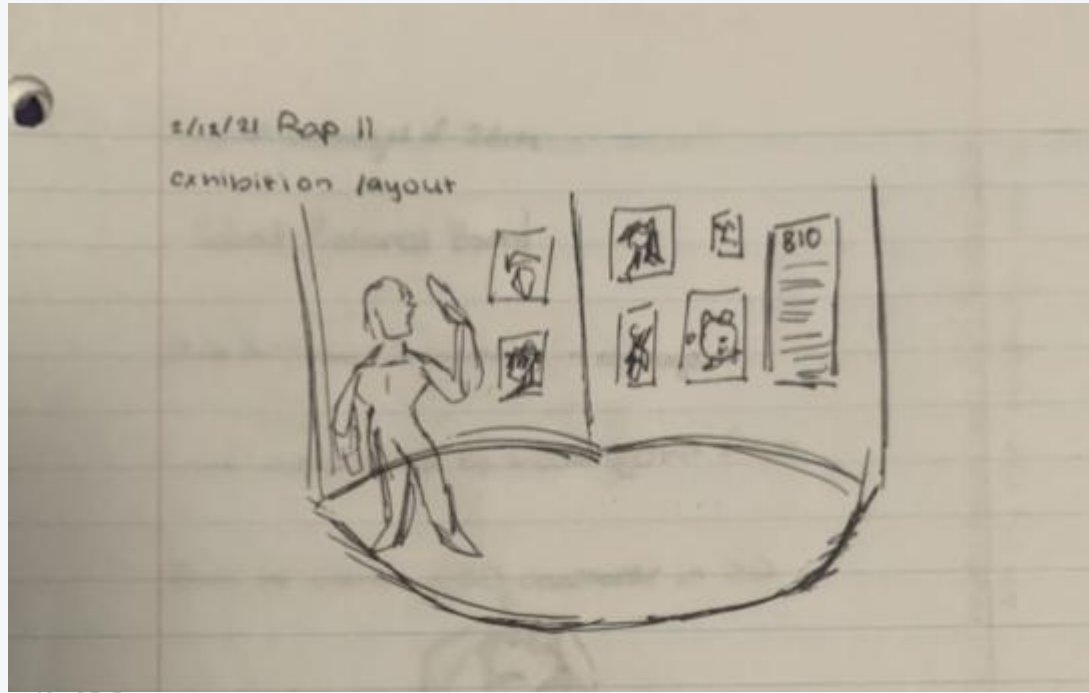 2/12/21 Rap 11
exhibition layout
BIO